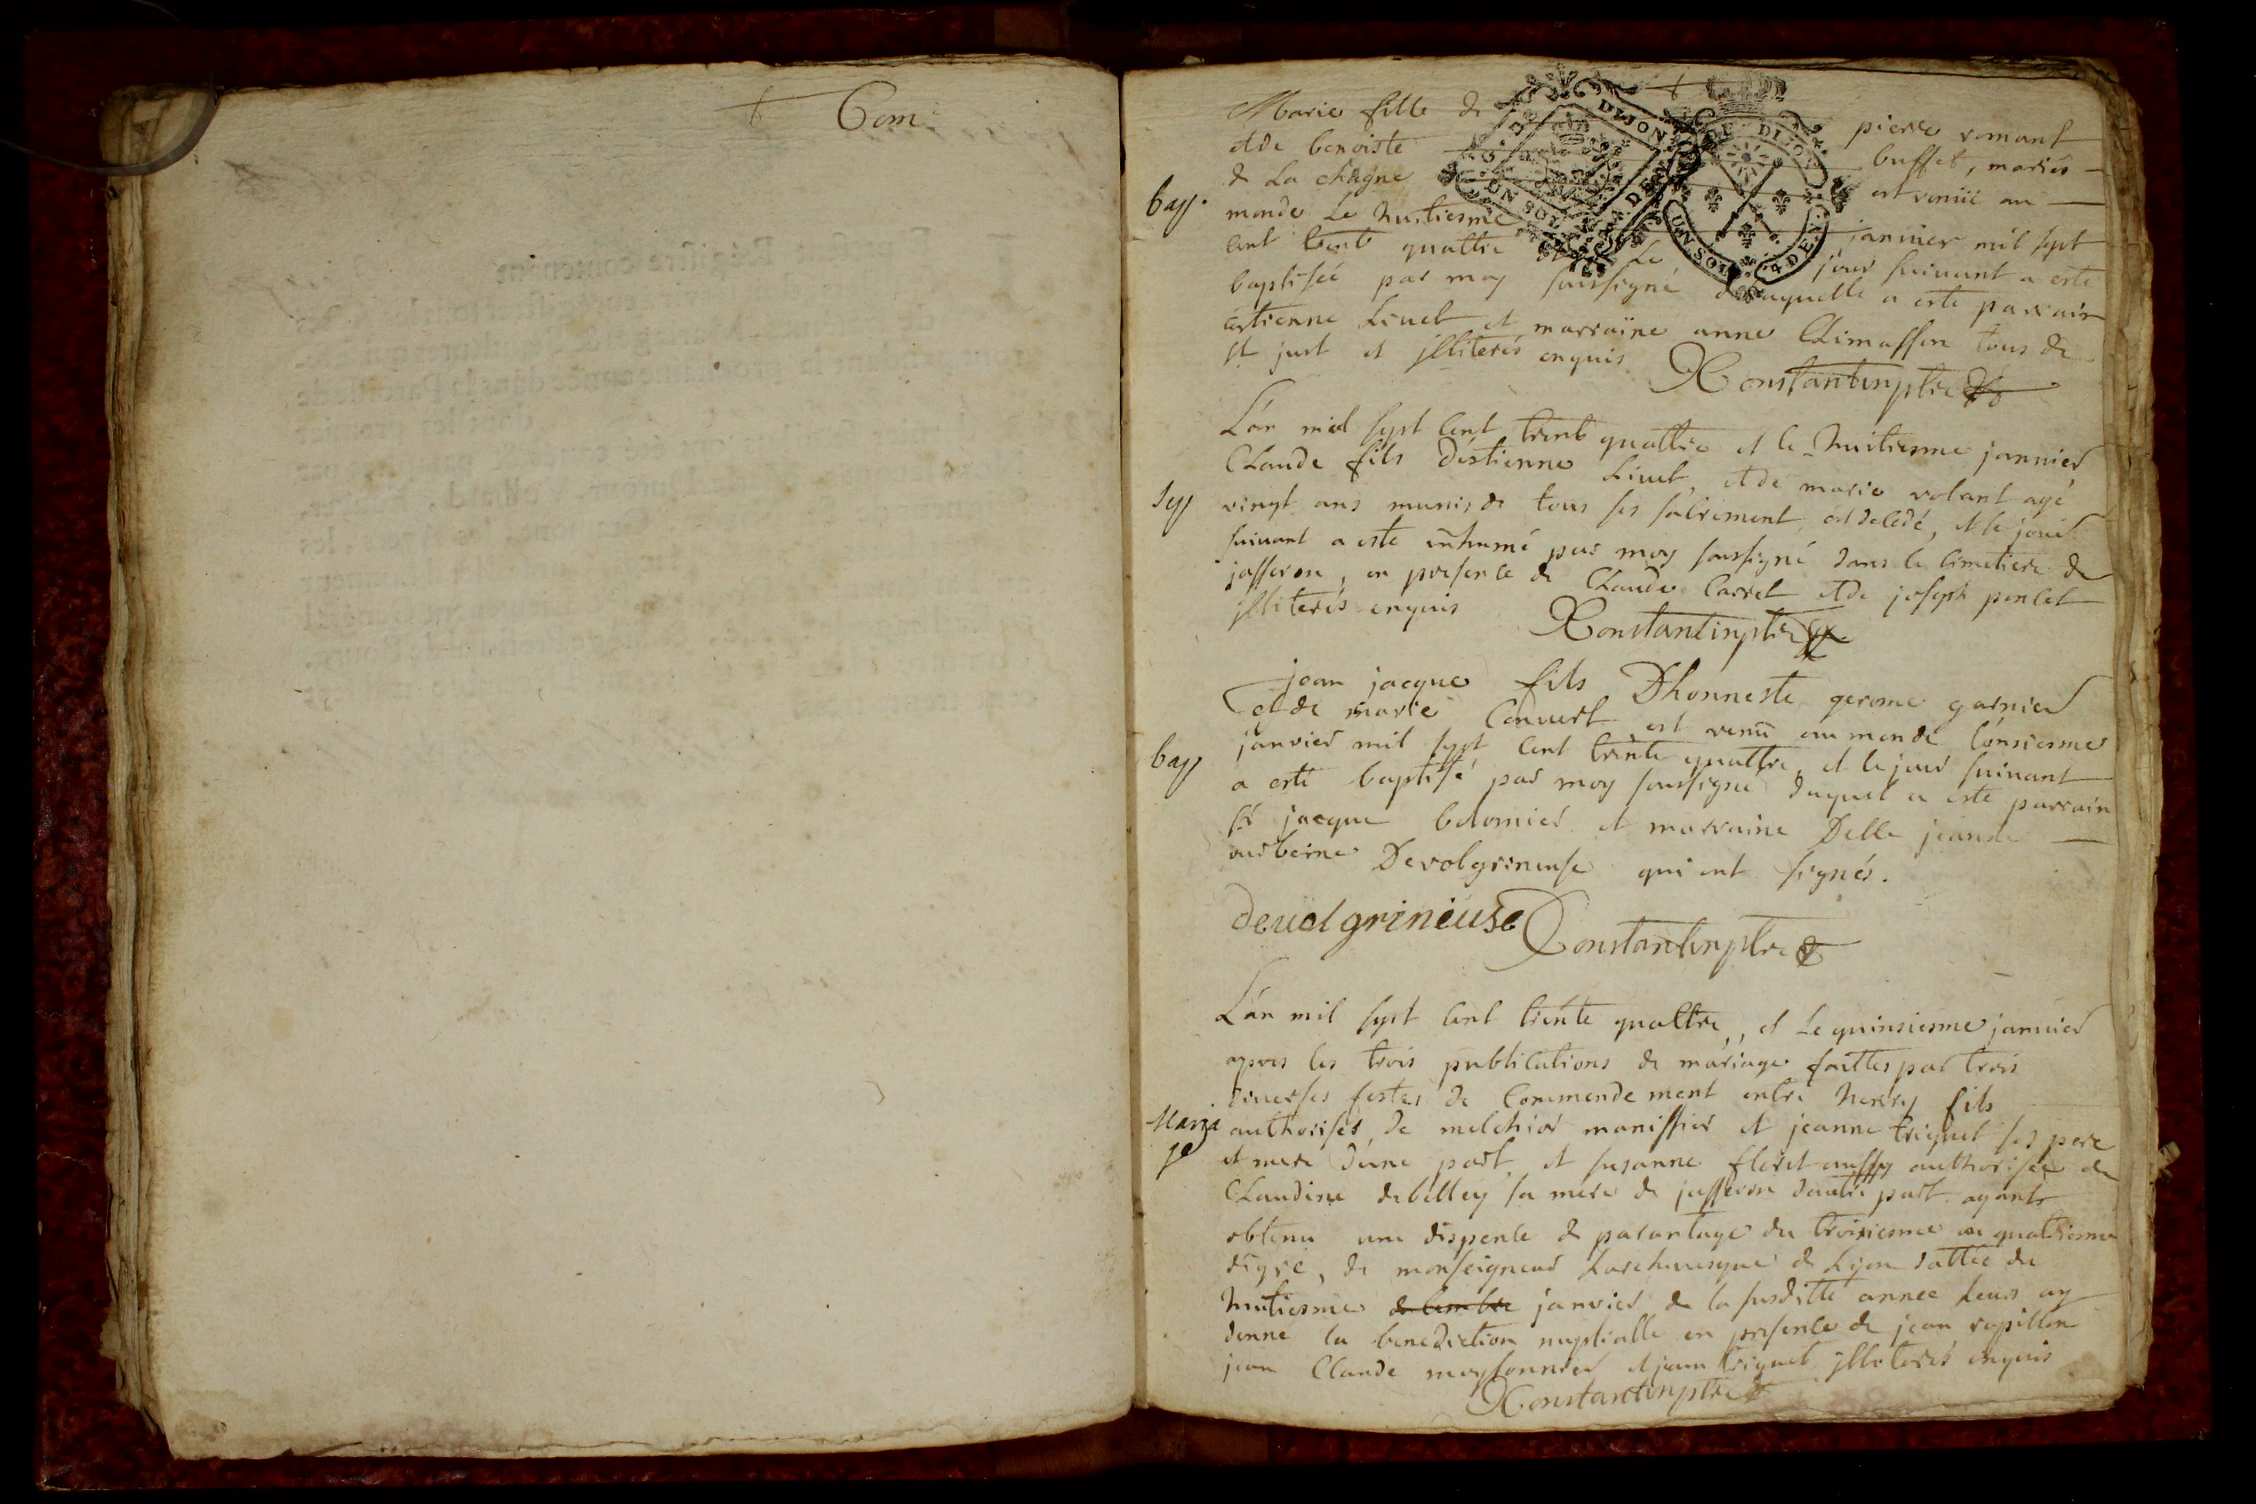 Com
Marie fille de pierre romant
et de benoiste buffet, mariés
de La chagne est venüe au
bap. monde Le huitiesme janvier mil sept
cent trente quattre et Le jour suivant a esté
baptisée par moy soussigné de laquelle a esté parrain
estienne Livet et marraine anne Chimasson tous de
st just et jlliterés enquis
Constantin ptre
L'an mil sept cent trente quattre et le huitiesme janvier
Claude fils d'estienne Livet, et de marie volant agé
sep vingt ans munis de tous ses sacrement est decedé, et le jour
suivant a esté inhumé par moy soussigné dans le cimetiere de
jasseron, en presence de Claude Carret et de joseph poncet
jlliterés enquis
Constantin ptre
jean jacque fils D'honneste gerome garnier
et de marie Convert est venû au monde l'onsiesme
bap janvier mil sept cent trente quattre, et le jour suivant
a esté baptisé par moy soussigné duquel a esté parrain
sr jacque belomier et marraine Delle jeanne
urbeine Devolgrineuse qui ont signés.
devolgrineuse Constantin ptre
L'an mil sept cent trente quattre, et Le quinsiesme janvier
apres les trois publications de mariage faittes par trois
diverses festes de Commendement entre henry fils
Maria authorisés de melchior manissier et jeanne triquet ses pere
ge et mere d'une part, et susanne floret aussy authorisée de
Claudine debelley sa mere de jasseron d'autre part ayants
obtenu une dispence de parantage du troisiesme au quatriesme
degré, de monseigneur Larchevesque de Lyon dattée du
huitiesme decembre janvier de la susditte année Leurs ay
donné la benediction nuptialle en presence de jean rapillon
jean Claude moyssonnier et jean triquet jlliterés enquis
Constantin ptre
DIJON
UN SOL
4 DEN.
DE DIJON
UN SOL
4 DEN.